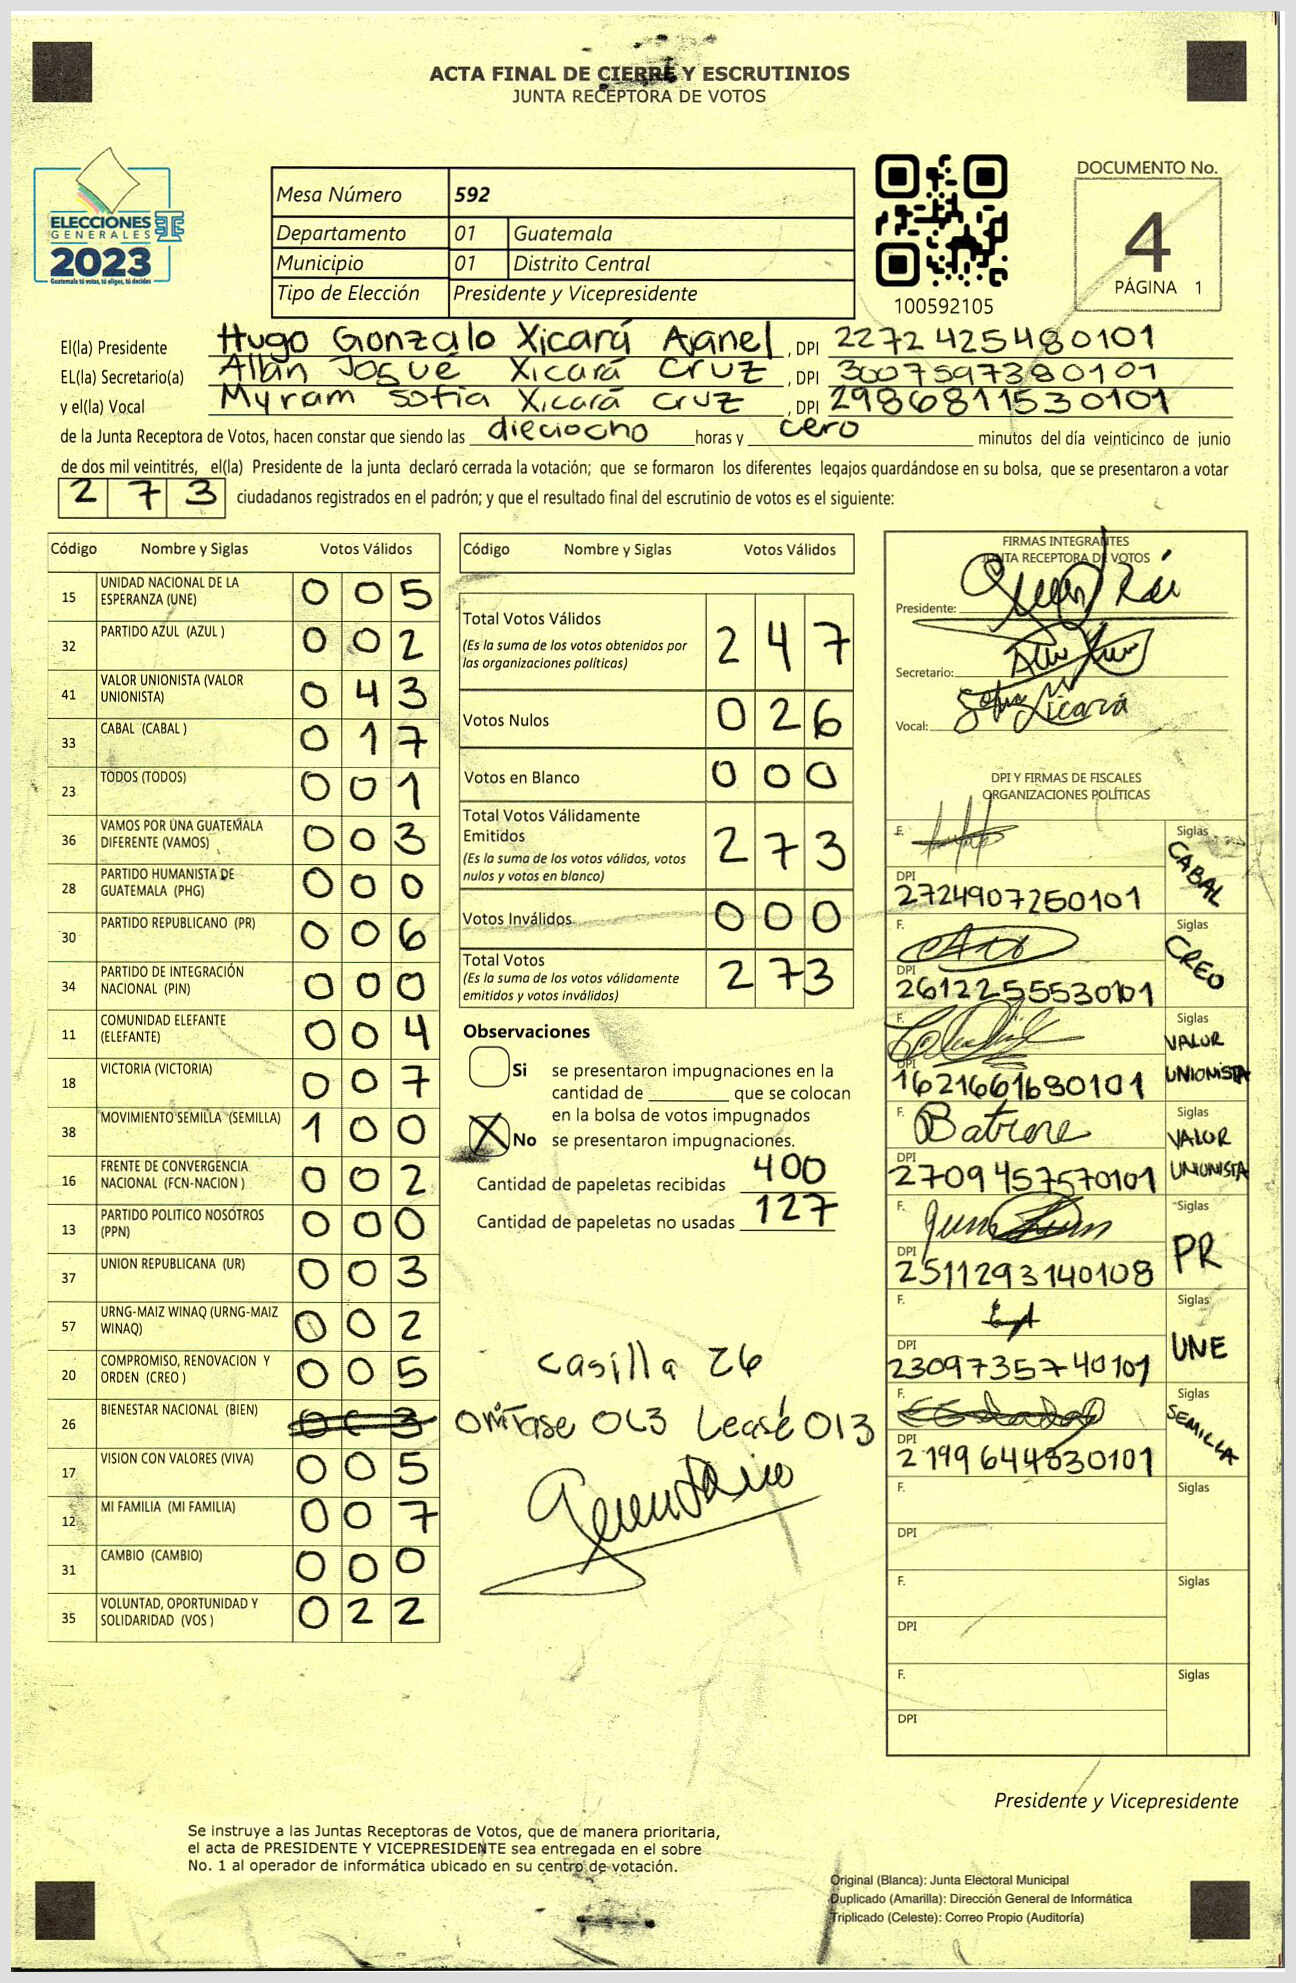 ACTA FINAL DE CIERRE Y ESCRUTINIOS
JUNTA RECEPTORA DE VOTOS
ELECCIONES
GENERALES
2023
Guatemala tú votas, tú eliges, tú decides
Mesa Número 592
Departamento 01 Guatemala
Municipio 01 Distrito Central
Tipo de Elección Presidente y Vicepresidente
100592105
DOCUMENTO No.
4
PÁGINA 1
El(la) Presidente Hugo Gonzalo Xicará Ajanel, DPI 2272425480101
EL(la) Secretario(a) Allan Josué Xicará Cruz, DPI 3007597380101
y el(la) Vocal Myram Sofia Xicará Cruz, DPI 2986811530101
de la Junta Receptora de Votos, hacen constar que siendo las dieciocho horas y cero minutos del día veinticinco de junio
de dos mil veintitrés, el(la) Presidente de la junta declaró cerrada la votación; que se formaron los diferentes legajos guardándose en su bolsa, que se presentaron a votar
273 ciudadanos registrados en el padrón; y que el resultado final del escrutinio de votos es el siguiente:
Código Nombre y Siglas Votos Válidos
15 UNIDAD NACIONAL DE LA ESPERANZA (UNE) 005
32 PARTIDO AZUL (AZUL ) 002
41 VALOR UNIONISTA (VALOR UNIONISTA) 043
33 CABAL (CABAL ) 017
23 TODOS (TODOS) 001
36 VAMOS POR UNA GUATEMALA DIFERENTE (VAMOS) 003
28 PARTIDO HUMANISTA DE GUATEMALA (PHG) 000
30 PARTIDO REPUBLICANO (PR) 006
34 PARTIDO DE INTEGRACIÓN NACIONAL (PIN) 000
11 COMUNIDAD ELEFANTE (ELEFANTE) 004
18 VICTORIA (VICTORIA) 007
38 MOVIMIENTO SEMILLA (SEMILLA) 100
16 FRENTE DE CONVERGENCIA NACIONAL (FCN-NACION ) 002
13 PARTIDO POLITICO NOSOTROS (PPN) 000
37 UNION REPUBLICANA (UR) 003
57 URNG-MAIZ WINAQ (URNG-MAIZ WINAQ) 002
20 COMPROMISO, RENOVACION Y ORDEN (CREO ) 005
26 BIENESTAR NACIONAL (BIEN)
17 VISION CON VALORES (VIVA) 005
12 MI FAMILIA (MI FAMILIA) 007
31 CAMBIO (CAMBIO) 000
35 VOLUNTAD, OPORTUNIDAD Y SOLIDARIDAD (VOS ) 022
Código Nombre y Siglas Votos Válidos
Total Votos Válidos 247
(Es la suma de los votos obtenidos por
las organizaciones políticas)
Votos Nulos 026
Votos en Blanco 000
Total Votos Válidamente
Emitidos 273
(Es la suma de los votos válidos, votos
nulos y votos en blanco)
Votos Inválidos 000
Total Votos 273
(Es la suma de los votos válidamente
emitidos y votos inválidos)
Observaciones
Si se presentaron impugnaciones en la
cantidad de ________ que se colocan
en la bolsa de votos impugnados
X No se presentaron impugnaciones.
Cantidad de papeletas recibidas 400
Cantidad de papeletas no usadas 127
Casilla 26
Omítase 063 Leasé 013
FIRMAS INTEGRANTES
JUNTA RECEPTORA DE VOTOS
Presidente:
Secretario:
Vocal: Sofia Xicará
DPI Y FIRMAS DE FISCALES
ORGANIZACIONES POLÍTICAS
F. Siglas CABAL
DPI 2724907250101
F. Siglas CREO
DPI 2612255530101
F. Siglas VALOR UNIONISTA
DPI 1621661680101
F. Siglas VALOR UNIONISTA
DPI 2709457570101
F. Siglas PR
DPI 2511293140108
F. Siglas UNE
DPI 2309735740101
F. Siglas SEMILLA
DPI 2199644830101
F. Siglas
DPI
F. Siglas
DPI
F. Siglas
DPI
Presidente y Vicepresidente
Se instruye a las Juntas Receptoras de Votos, que de manera prioritaria,
el acta de PRESIDENTE Y VICEPRESIDENTE sea entregada en el sobre
No. 1 al operador de informática ubicado en su centro de votación.
Original (Blanca): Junta Electoral Municipal
Duplicado (Amarilla): Dirección General de Informática
Triplicado (Celeste): Correo Propio (Auditoría)